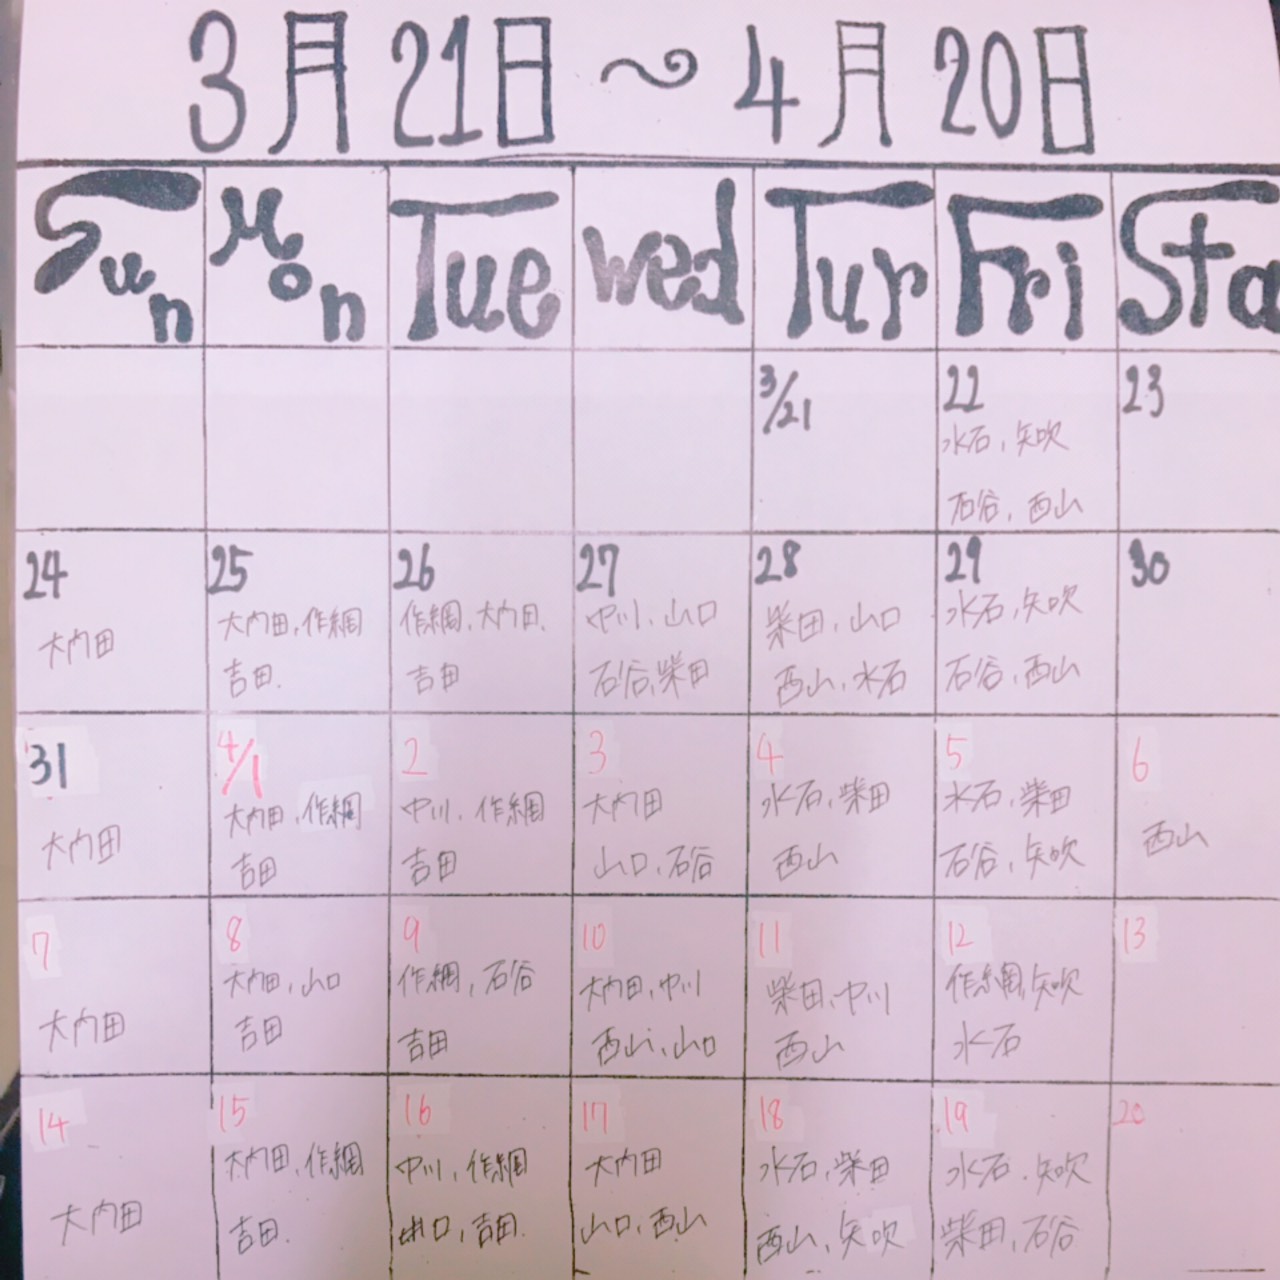 3月21日～4月20日
Sun Mon Tue Wed Tur Fri Sta
3/21 22 23
水石,矢吹
石谷,西山
24 25 26 27 28 29 30
大内田 大内田,作綱 作綱,大内田 中川,山口 柴田,山口 水石,矢吹
吉田 吉田 石谷,柴田 西山,水石 石谷,西山
31 4/1 2 3 4 5 6
大内田 大内田,作綱 中川,作綱 大内田 水石,柴田 水石,柴田 西山
吉田 吉田 山口,石谷 西山 石谷,矢吹
7 8 9 10 11 12 13
大内田 大内田,山口 作綱,石谷 大内田,中川 柴田,中川 作綱,矢吹
吉田 吉田 西山,山口 西山 水石
14 15 16 17 18 19 20
大内田 大内田,作綱 中川,作綱 大内田 水石,柴田 水石,矢吹
吉田 山口,吉田 山口,西山 西山,矢吹 柴田,石谷